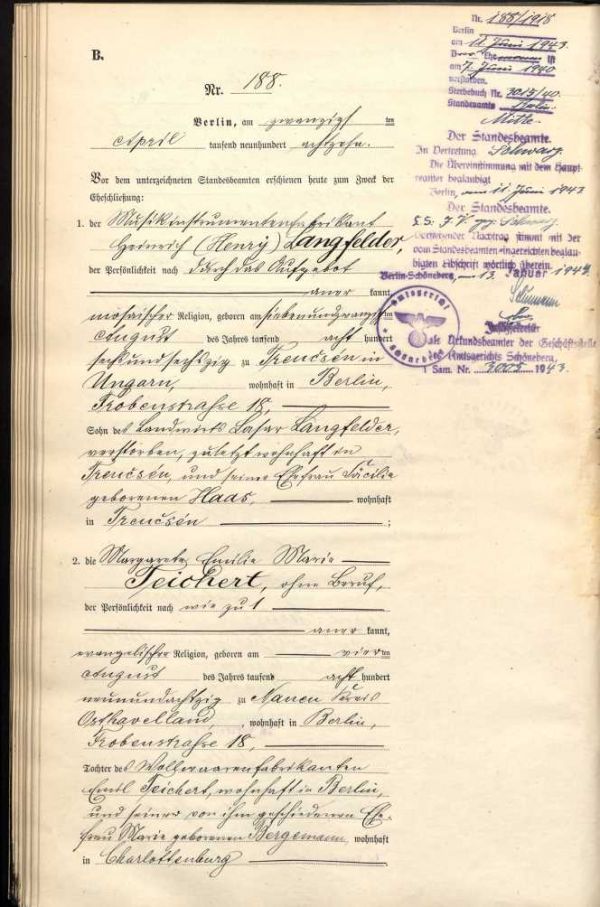 B.
Nr. 188.
Berlin, am zwanzigsten
April tausend neunhundert achtzehn.
Vor dem unterzeichneten Standesbeamten erschienen heute zum Zweck der
Eheschließung:
1. der Musikinstrumentenfabrikant
Heinrich (Henry) Langfelder,
der Persönlichkeit nach durch das Aufgebot
aner kannt,
mosaischer Religion, geboren am siebenundzwanzigsten
August des Jahres tausend acht hundert
sechsundsechszig zu Trencsén in
Ungarn, wohnhaft in Berlin,
Frobenstraße 18,
Sohn des Landwirts Lasar Langfelder,
verstorben, zuletzt wohnhaft in
Trencsén, und seiner Ehefrau Cäcilia
geborenen Haas, wohnhaft
in Trencsén ;
2. die Margarete Emilie Marie
Teichert, ohne Beruf,
der Persönlichkeit nach wie zu 1
aner kannt,
evangelischer Religion, geboren am vierten
August des Jahres tausend acht hundert
neunundachtzig zu Nauen Kreis
Osthavelland, wohnhaft in Berlin,
Frobenstraße 18,
Tochter des Wollwaarenfabrikanten
Emil Teichert, wohnhaft in Berlin,
und seiner von ihm geschiedenen Ehe-
frau Marie geborenen Bergemann, wohnhaft
in Charlottenburg .
Nr. 188/1918
Berlin
am 11. Juni 1943.
ist
am 7. Juni 1940
verstorben.
Sterbebuch Nr. 3015/40
Standesamts Berlin
Mitte.
Der Standesbeamte.
In Vertretung Schwarz
Die Übereinstimmung mit dem Haupt-
register beglaubigt
Berlin, am 11. Juni 1943
Der Standesbeamte.
J. V. gez. Schwarz
Vorstehender Nachtrag stimmt mit der
vom Standesbeamten eingereichten beglau-
bigten Abschrift wörtlich überein.
Berlin-Schöneberg, 13. Januar 1944
als Urkundsbeamter der Geschäftsstelle
Amtsgerichts Schöneberg,
Sam. Nr. 3005 1943.
Amtsgericht
Schöneberg